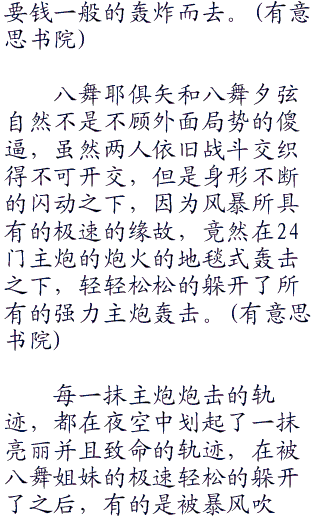 要钱一般的轰炸而去。(有意
思书院)
八舞耶俱矢和八舞夕弦
自然不是不顾外面局势的傻
逼，虽然两人依旧战斗交织
得不可开交，但是身形不断
的闪动之下，因为风暴所具
有的极速的缘故，竟然在24
门主炮的炮火的地毯式轰击
之下，轻轻松松的躲开了所
有的强力主炮轰击。(有意思
书院)
每一抹主炮炮击的轨
迹，都在夜空中划起了一抹
亮丽并且致命的轨迹，在被
八舞姐妹的极速轻松的躲开
了之后，有的是被暴风吹